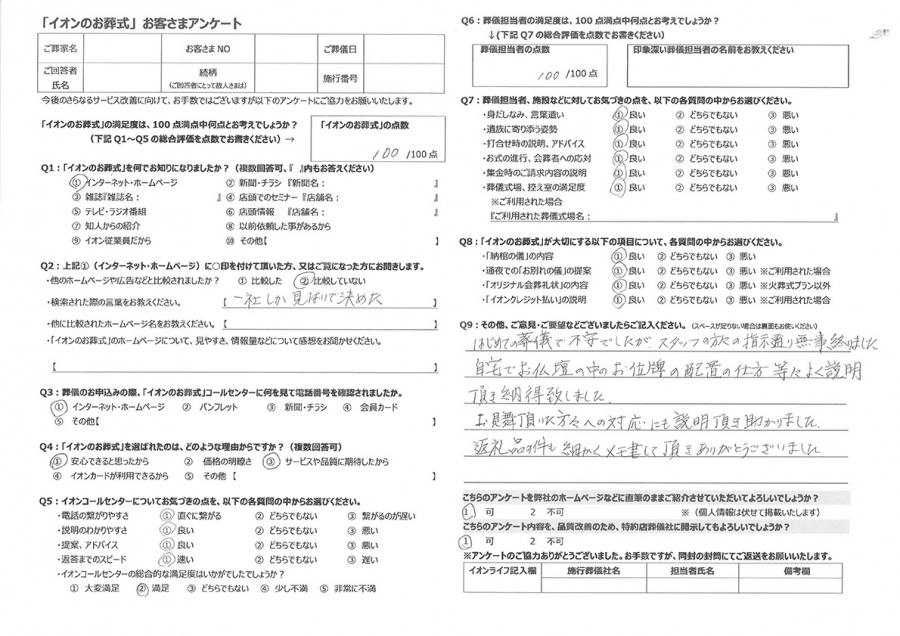 「イオンのお葬式」お客さまアンケート
ご葬家名 お客さまNO ご葬儀日
ご回答者氏名 続柄（ご回答者にとって故人さまは） 施行番号
今後のさらなるサービス改善に向けて、お手数ではございますが以下のアンケートにご協力をお願いいたします。
「イオンのお葬式」の満足度は、100点満点中何点とお考えでしょうか？
（下記Q1～Q5の総合評価を点数でお書きください）→
「イオンのお葬式」の点数
100 /100点
Q1：「イオンのお葬式」を何でお知りになりましたか？（複数回答可、『 』内もお答えください）
① インターネット・ホームページ ② 新聞・チラシ『新聞名： 』
③ 雑誌『雑誌名： 』 ④ 店頭でのセミナー『店舗名： 』
⑤ テレビ・ラジオ番組 ⑥ 店頭情報 『店舗名： 』
⑦ 知人からの紹介 ⑧ 以前依頼した事があるから
⑨ イオン従業員だから ⑩ その他【 】
Q2：上記①（インターネット・ホームページ）に○印を付けて頂いた方、又はご覧になった方にお聞きします。
・他のホームページや広告などと比較されましたか？ ① 比較した ② 比較していない
・検索された際の言葉をお教えください。 【 一社しか見ないで決めた 】
・他に比較されたホームページ名をお教えください。【 】
・「イオンのお葬式」のホームページについて、見やすさ、情報量などについて感想をお聞かせください。
【 】
Q3：葬儀のお申込みの際、「イオンのお葬式」コールセンターに何を見て電話番号を確認されましたか。
① インターネット・ホームページ ② パンフレット ③ 新聞・チラシ ④ 会員カード
⑤ その他【 】
Q4：「イオンのお葬式」を選ばれたのは、どのような理由からですか？（複数回答可）
① 安心できると思ったから ② 価格の明瞭さ ③ サービスや品質に期待したから
④ イオンカードが利用できるから ⑤ その他 【 】
Q5：イオンコールセンターについてお気づきの点を、以下の各質問の中からお選びください。
・電話の繋がりやすさ ① 直ぐに繋がる ② どちらでもない ③ 繋がるのが遅い
・説明のわかりやすさ ① 良い ② どちらでもない ③ 悪い
・提案、アドバイス ① 良い ② どちらでもない ③ 悪い
・返答までのスピード ① 速い ② どちらでもない ③ 遅い
・イオンコールセンターの総合的な満足度はいかがでしたでしょうか？
① 大変満足 ② 満足 ③ どちらでもない ④ 少し不満 ⑤ 非常に不満
Q6：葬儀担当者の満足度は、100点満点中何点とお考えでしょうか？
↓（下記Q7の総合評価を点数でお書きください）
葬儀担当者の点数 印象深い葬儀担当者の名前をお教えください
100 /100点
Q7：葬儀担当者、施設などに対してお気づきの点を、以下の各質問の中からお選びください。
・身だしなみ、言葉遣い ① 良い ② どちらでもない ③ 悪い
・遺族に寄り添う姿勢 ① 良い ② どちらでもない ③ 悪い
・打合せ時の説明、アドバイス ① 良い ② どちらでもない ③ 悪い
・お式の進行、会葬者への応対 ① 良い ② どちらでもない ③ 悪い
・集金時のご請求内容の説明 ① 良い ② どちらでもない ③ 悪い
・葬儀式場、控え室の満足度 ① 良い ② どちらでもない ③ 悪い
※ご利用された場合
『ご利用された葬儀式場名： 』
Q8：「イオンのお葬式」が大切にする以下の項目について、各質問の中からお選びください。
・「納棺の儀」の内容 ① 良い ② どちらでもない ③ 悪い
・通夜での「お別れの儀」の提案 ① 良い ② どちらでもない ③ 悪い ※ご利用された場合
・「オリジナル会葬礼状」の内容 ① 良い ② どちらでもない ③ 悪い ※火葬式プラン以外
・「イオンクレジット払い」の説明 ① 良い ② どちらでもない ③ 悪い ※ご利用された場合
Q9：その他、ご意見・ご要望などございましたらご記入ください。（スペースが足りない場合は裏面もお使いください）
はじめての葬儀で不安でしたが、スタッフの方々の指示通り無事終りました
自宅でお仏壇の中のお位牌の配置の仕方等もよく説明
頂き納得致しました。
お見舞頂いた方々への対応にも説明頂き助かりました。
返礼品の件も細かくメモ書して頂きありがとうございました
こちらのアンケートを弊社のホームページなどに直筆のままご紹介させていただいてよろしいでしょうか？
1 可 2 不可 ※（個人情報は伏せて掲載いたします）
こちらのアンケート内容を、品質改善のため、特約店葬儀社に開示してもよろしいでしょうか？
1 可 2 不可
※アンケートのご協力ありがとうございました。お手数ですが、同封の封筒にてご返送をお願いいたします。
イオンライフ記入欄 施行葬儀社名 担当者氏名 備考欄